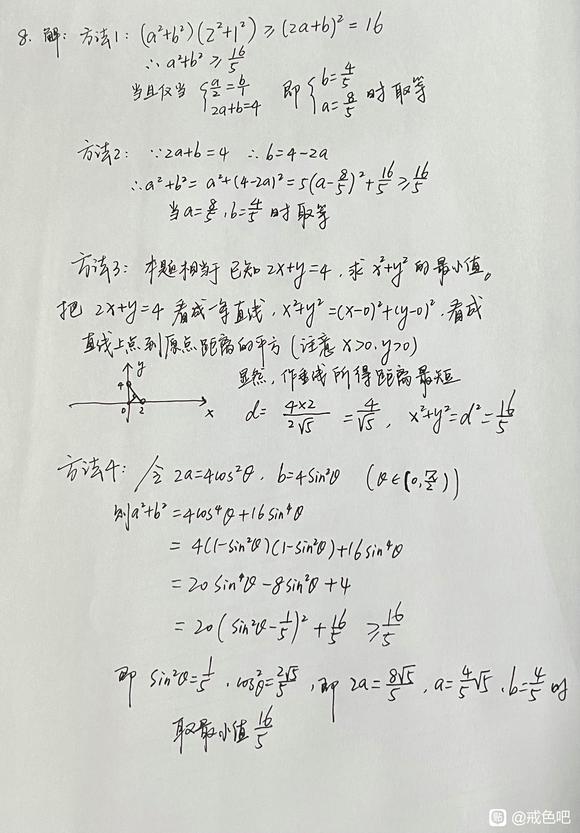 8. 解: 方法1: (a²+b²)(2²+1²) ≥ (2a+b)² = 16
∴ a²+b² ≥ 16/5
当且仅当 { a/2 = b/1, 2a+b=4 即 { b=4/5, a=8/5 时取等
方法2: ∵2a+b=4 ∴ b=4-2a
∴a²+b²= a²+(4-2a)²=5(a-8/5)²+16/5 ≥16/5
当a=8/5, b=4/5 时取等
方法3: 本题相当于已知 2x+y=4, 求 x²+y² 的最小值。
把 2x+y=4 看成一条直线, x²+y²=(x-0)²+(y-0)², 看成
直线上点到原点距离的平方 (注意 x>0, y>0)
y
4
0 2 x
显然, 作垂线所得距离最短
d= 4×2/2√5 = 4/√5, x²+y²=d²=16/5
方法4: 令 2a=4cos²θ, b=4sin²θ (θ∈[0,π/2))
则a²+b² =4cos⁴θ+16sin⁴θ
= 4(1-sin²θ)(1-sin²θ)+16sin⁴θ
=20sin⁴θ-8sin²θ+4
=20(sin²θ-1/5)²+16/5 ≥16/5
即 sin²θ=1/5, cos²θ=2√5/5, 即 2a=8√5/5, a=4/5√5, b=4/5 时
取最小值16/5
贴 @戒色吧